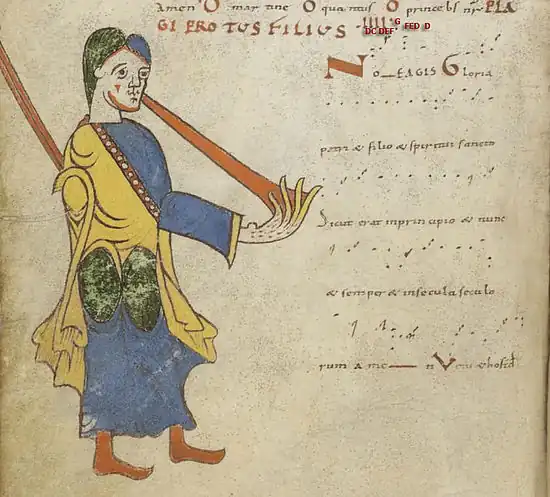 Amen O mar tine O qua mus O princeps PLA
GI PROTUS FILIUS DC DEF G FED D
NO_EAGIS Gloria
patri & filio & spiritui sancto
Sicut erat inprincipio & nunc
& semper & insecula seculo
rum amen V